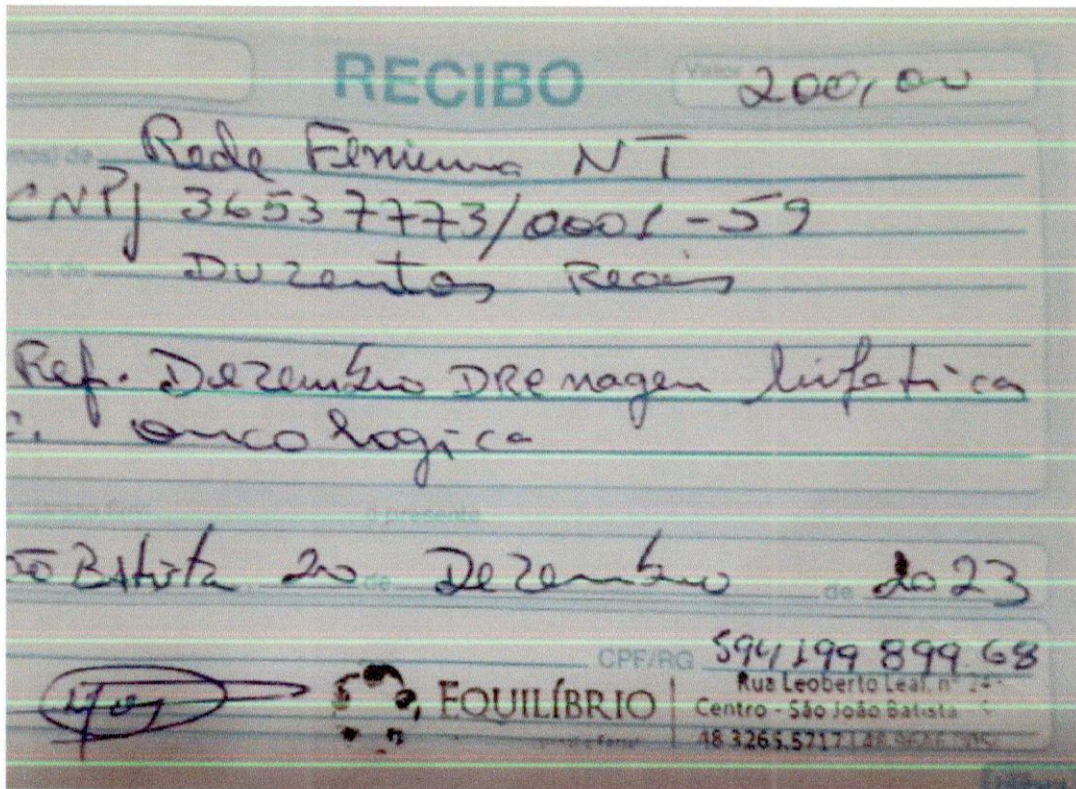 RECIBO
Valor 200,00
de Rede Feminina NT
CNPJ 36537773/0001-59
Duzentos Reais
Ref. Dezembro DRenagem linfatica
oncologica
o presente
Batista 20 de Dezembro de 2023
CPF/RG 594 199 899 68
EQUILÍBRIO
Rua Leoberto Leal, nº
Centro - São João Batista
48 3265.5717 | 48